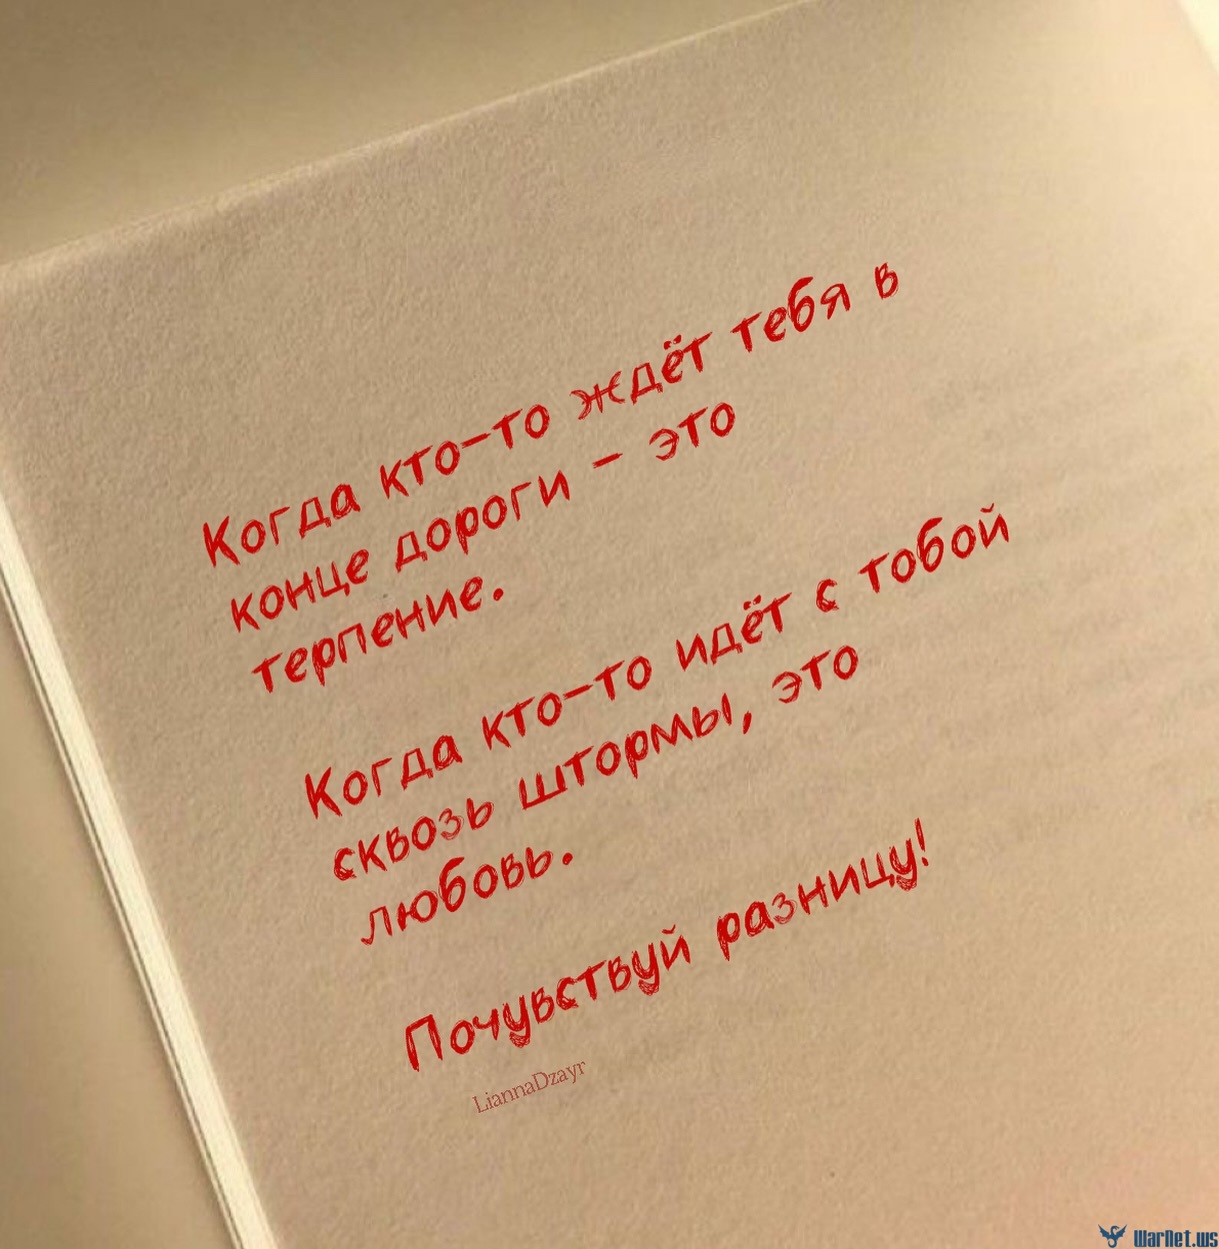 Когда кто-то ждёт тебя в
конце дороги - это
терпение.
Когда кто-то идёт с тобой
сквозь штормы, это
любовь.
Почувствуй разницу!
LiannaDzayr
WarNet.ws